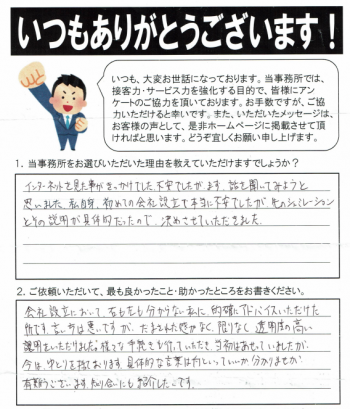 いつもありがとうございます！
いつも、大変お世話になっております。当事務所では、
接客力・サービス力を強化する目的で、皆様にアン
ケートのご協力を頂いております。お手数ですが、ご協
力いただけると幸いです。また、いただいたメッセージは、
お客様の声として、是非ホームページに掲載させて頂
ければと思います。どうぞ宜しくお願い申し上げます。
1．当事務所をお選びいただいた理由を教えていただけますでしょうか？
インターネットを見た事がきっかけでした。不安でしたが、まず、話を聞いてみようと
思いました。私自身、初めての会社設立で本当に不安でしたが、先のシミュレーション
とその説明が具体的だったので、決めさせていただきました。
2．ご依頼いただいて、最も良かったこと・助かったところをお書きください。
会社設立において、右も左も分からない私に、的確にアドバイスいただけた
所です。言い方は悪いですが、だまされた感がなく、限りなく透明度の高い
説明をいただけました。様々な手続きを行っていただき、当初はあせっていましたが、
今は、ゆとりを持てております。具体的な言葉は何といっていいか分かりませんが
有難うございます。知り合いにも紹介したいです。